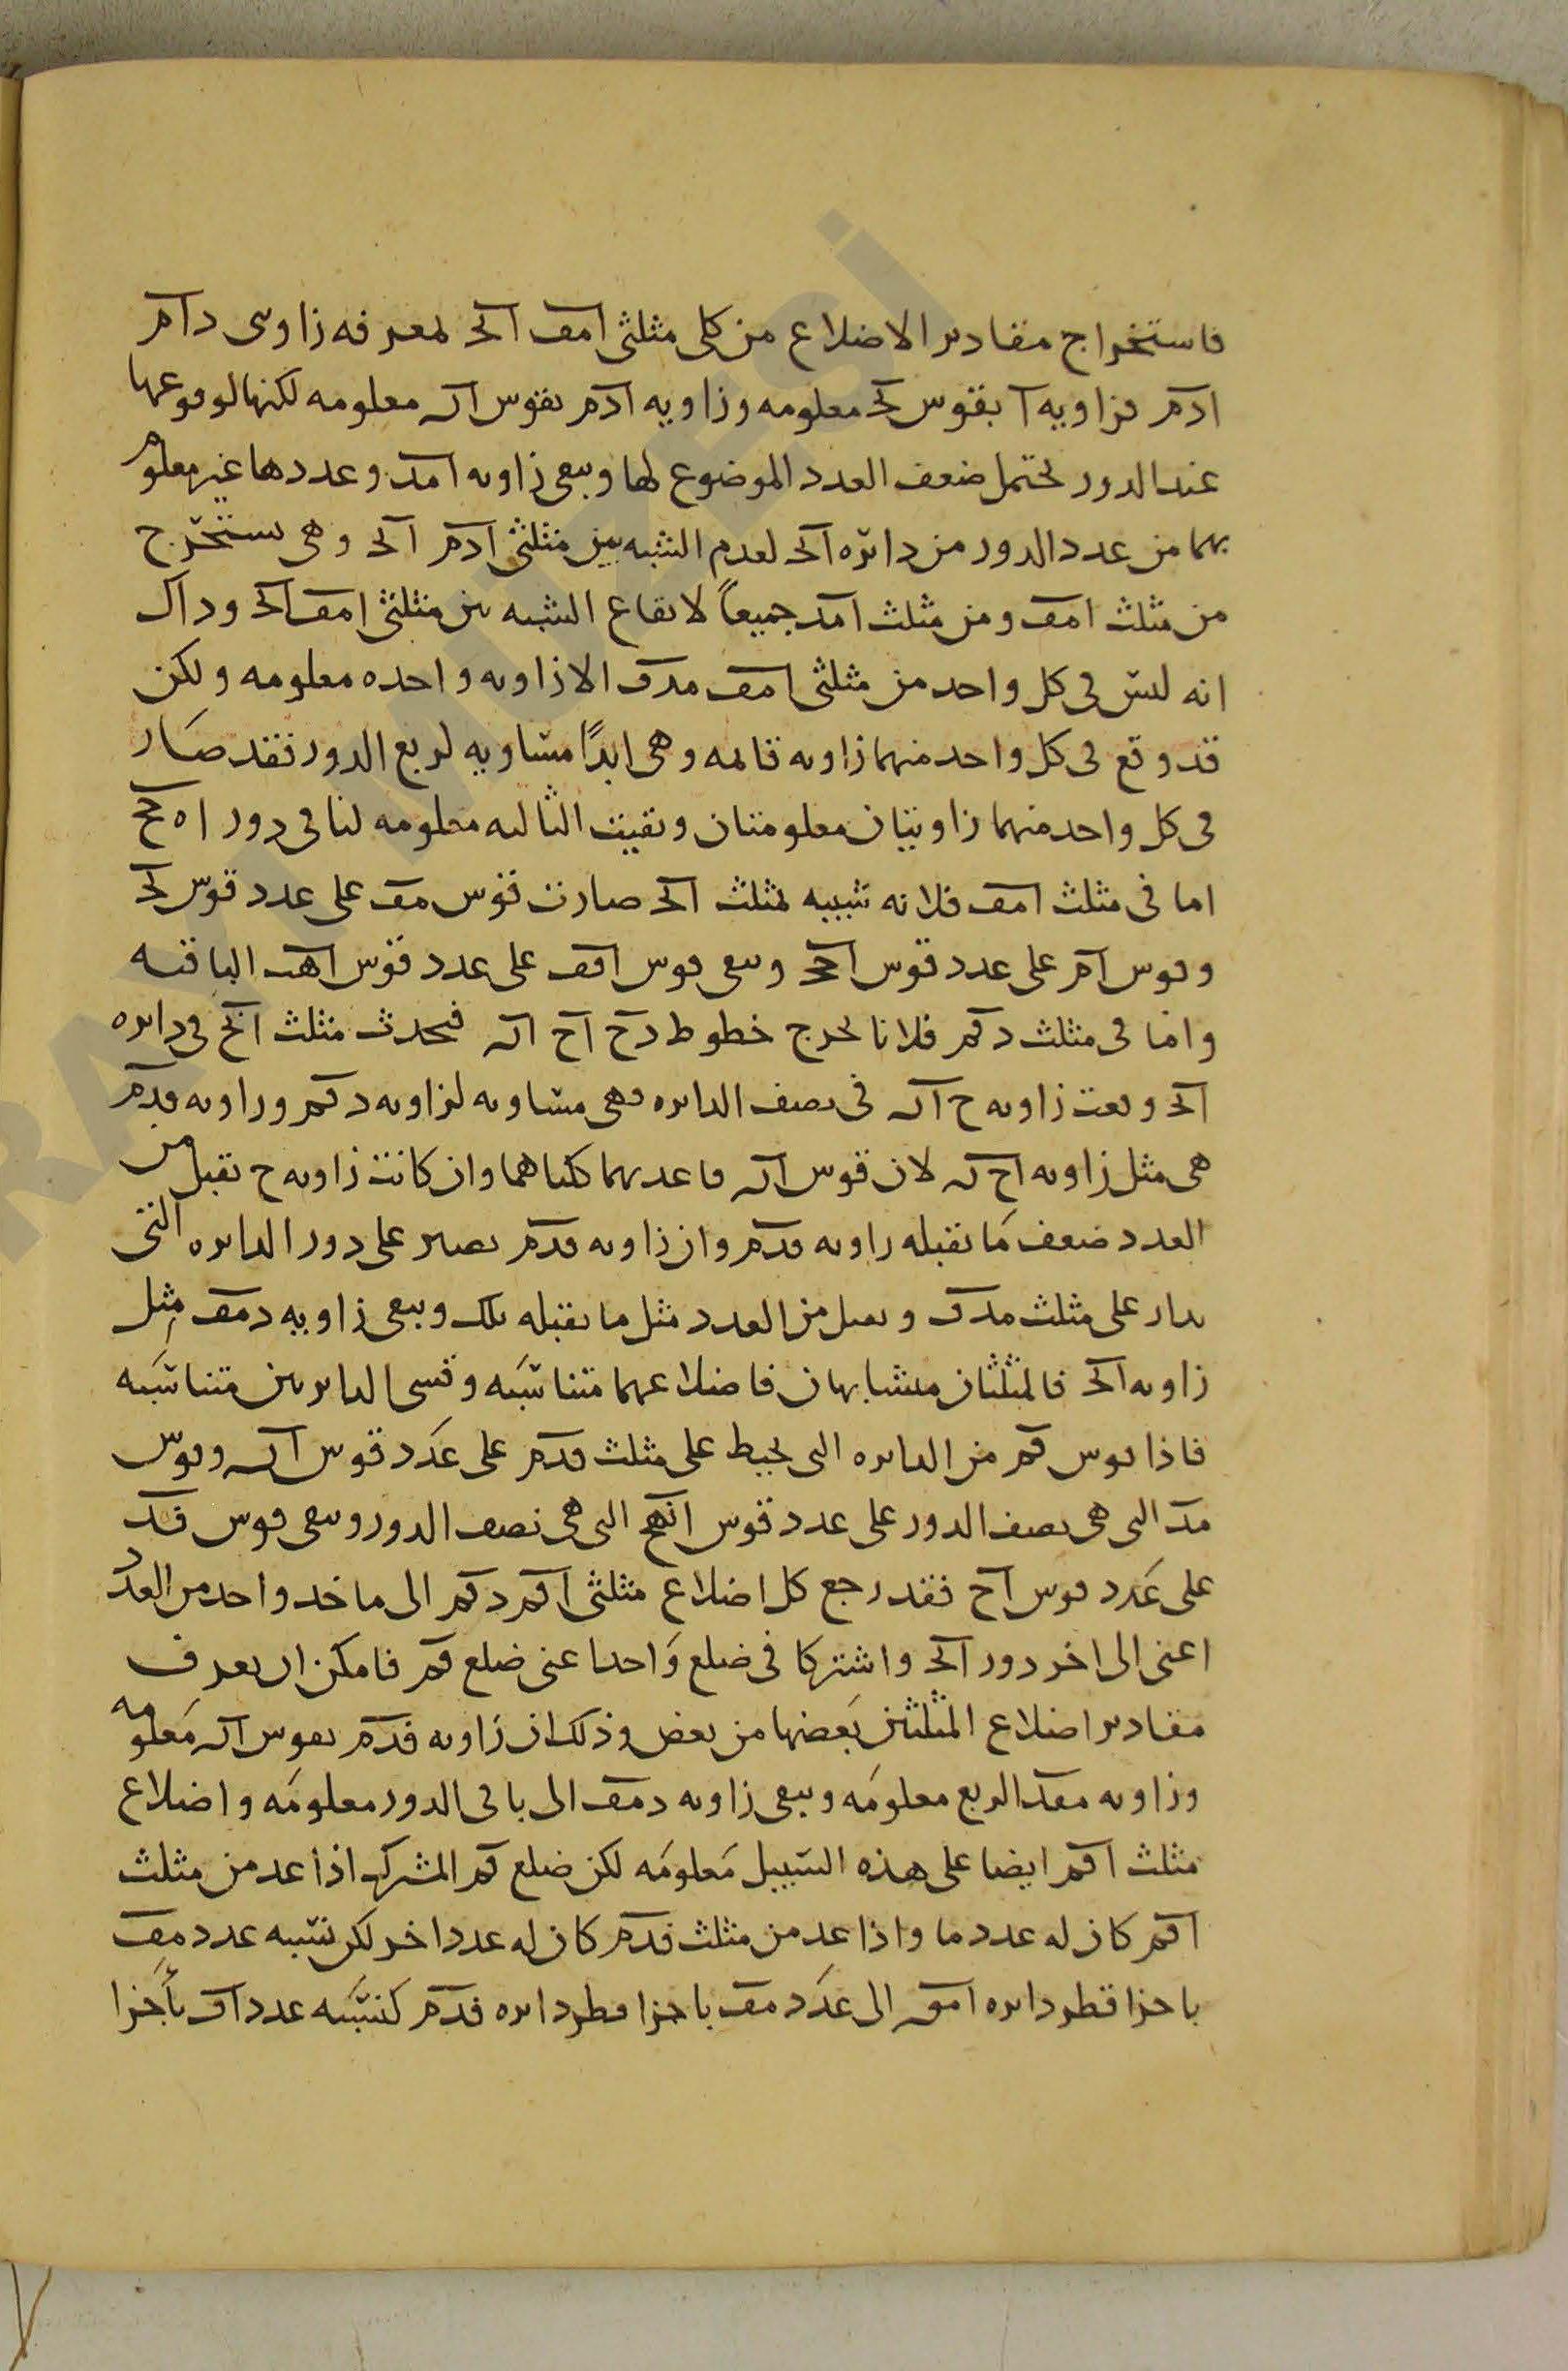 فاستخراج مقادير الاضلاع من كلى مثلثى امف الح لمعرفه زاوىى دام
ادم فزاويه ا بقوس لح معلومه وزاويه ادم بقوس اله معلومه لكنها لوقوعها
عند الدور تحتمل ضعف العدد الموضوع لها وىىقى زاويه امد وعددها غير معلوم
بهما من عدد الدور من دائره الح لعدم الشبه بين مثلثى ادم الح وهى تستخرج
من مثلث امف ومن مثلث امد جميعاً لايقاع الشبه بين مثلثى امف الح وذاك
انه ليس فى كل واحد من مثلثى امف مدف الا زاويه واحده معلومه ولكن
قد وقع فى كل واحد منهما زاويه قائمه وهى ابداً مساويه لربع الدور فقد صار
فى كل واحد منهما زاويتان معلومتان وبقيت الثالثه معلومه لنا فى دور
اما فى مثلث امف فلانه شبيه لمثلث الح صارت قوس مف على عدد قوس لح
وقوس ام على عدد قوس وىىقى قوس اف على عدد قوس الباقيه
واما فى مثلث دقم فلانا نخرج خطوط دح اح اله فيحدث مثلث فى دائره
الح وىقىت زاويه ح اله فى نصف الدائره فهى مساويه لزاويه دقم وزاويه قدم
هى مثل زاويه اح له لان قوس اله قاعدتهما كلتاهما وان كانت زاويه ح تقبل من
العدد ضعف ما تقبله زاويه قدم وان زاويه قدم تصير على دور الدائره التى
تدار على مثلث مدف وتقبل من العدد مثل ما تقبله تلك وىىقى زاويه دمف مثل
زاويه الح فالمثلثان متشابهان فاضلاعهما متناسبه وقسى الدائرتين متناسبه
فاذا قوس قم من الدائره التى تحيط على مثلث قدم على عدد قوس اله وقوس
مد التى هى نصف الدور على عدد قوس التى هى نصف الدور وىىقى قوس قد
على عدد قوس اح فقد رجع كل اضلاع مثلثى اقم دقم الى ماخذ واحد من العدد
اعنى الى اخر دور الح واشتركا فى ضلع واحد اعنى ضلع قم فامكن ان يعرف
مقادير اضلاع المثلثين بعضها من بعض وذلك ان زاويه قدم بقوس اله معلومه
وزاويه مقد الربع معلومه وىىقى زاويه دمف الى باقى الدور معلومه واضلاع
مثلث اقم ايضا على هذه السبيل معلومه لكن ضلع قم المشترك اذا عد من مثلث
اقم كان له عدد ما واذا عد من مثلث قدم كان له عدد اخر لكن نسبه عدد مف
باجزا قطر دائره امف الى عدد مف باجزا قطر دائره قدم كنسبه عدد اف باجزا